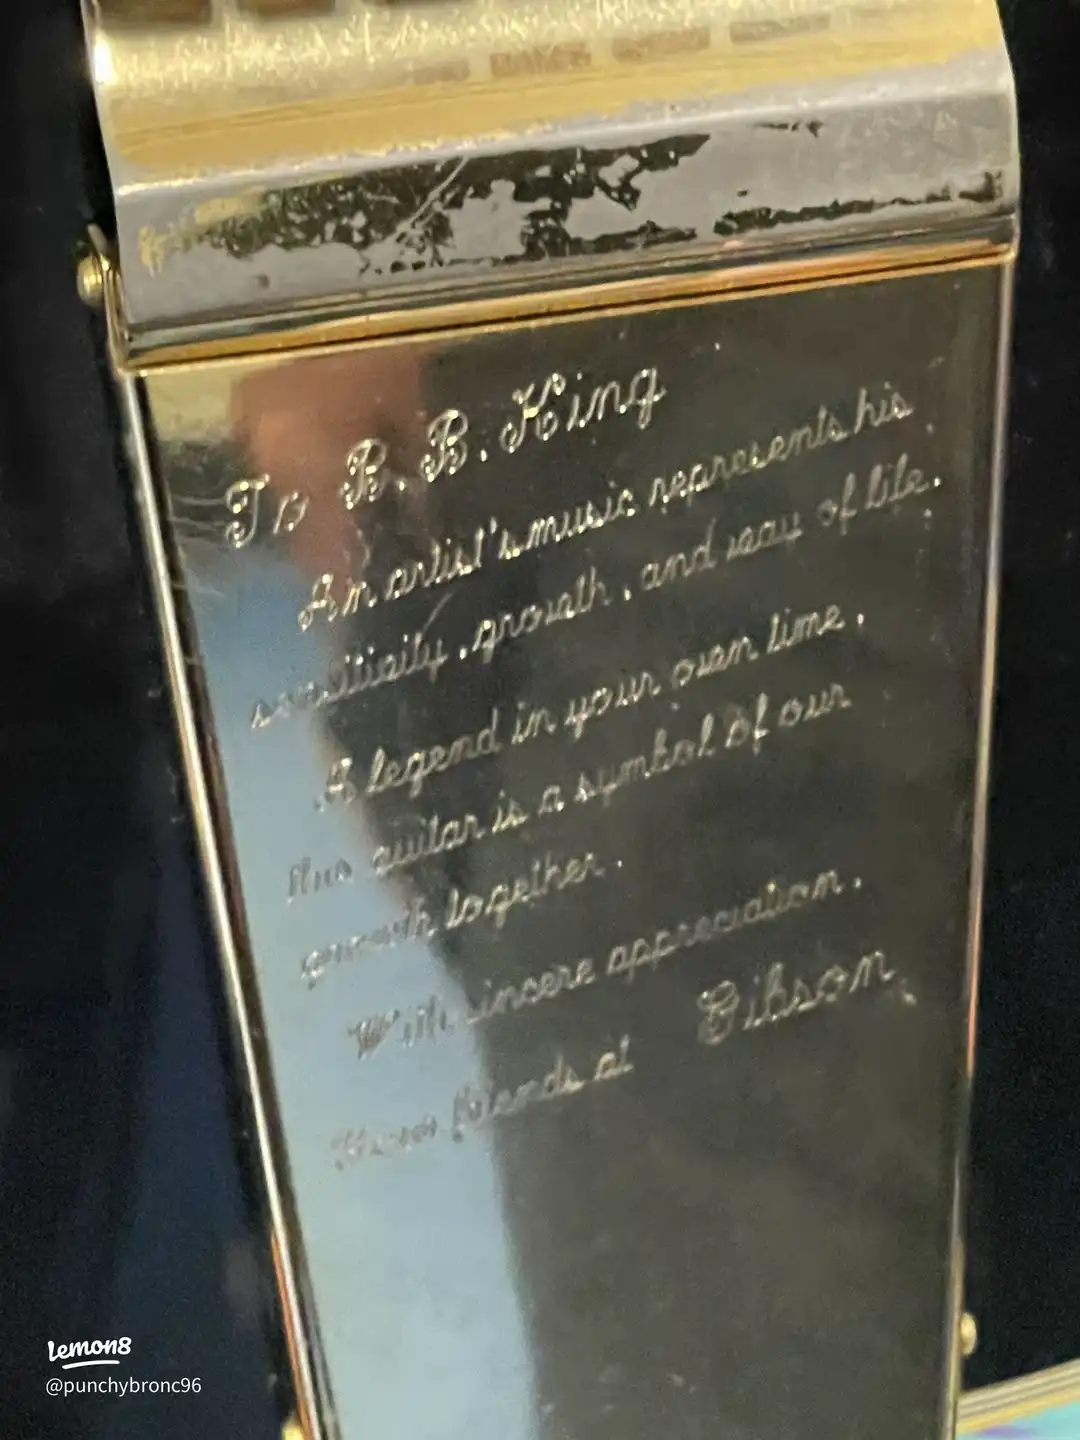 To B. B. King
An artist's music represents his
sensitivity, growth, and way of life.
A legend in your own time,
this guitar is a symbol of our
growth together.
With sincere appreciation,
Your friends at Gibson
lemon8
@punchybronc96